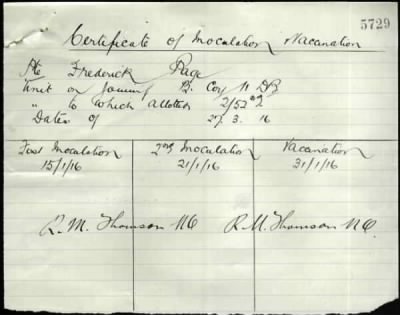 5729
Certificate of Inoculation Vacanation
Pte Frederick Page
Unit on Joining B. Coy 11 DB
" to which allotted 2/52nd
Date of 27. 3. 16
First Inoculation 2nd Inoculation Vacanation
15/1/16 21/1/16 31/1/16
R. M. Thomson MO R. M. Thomson MO.